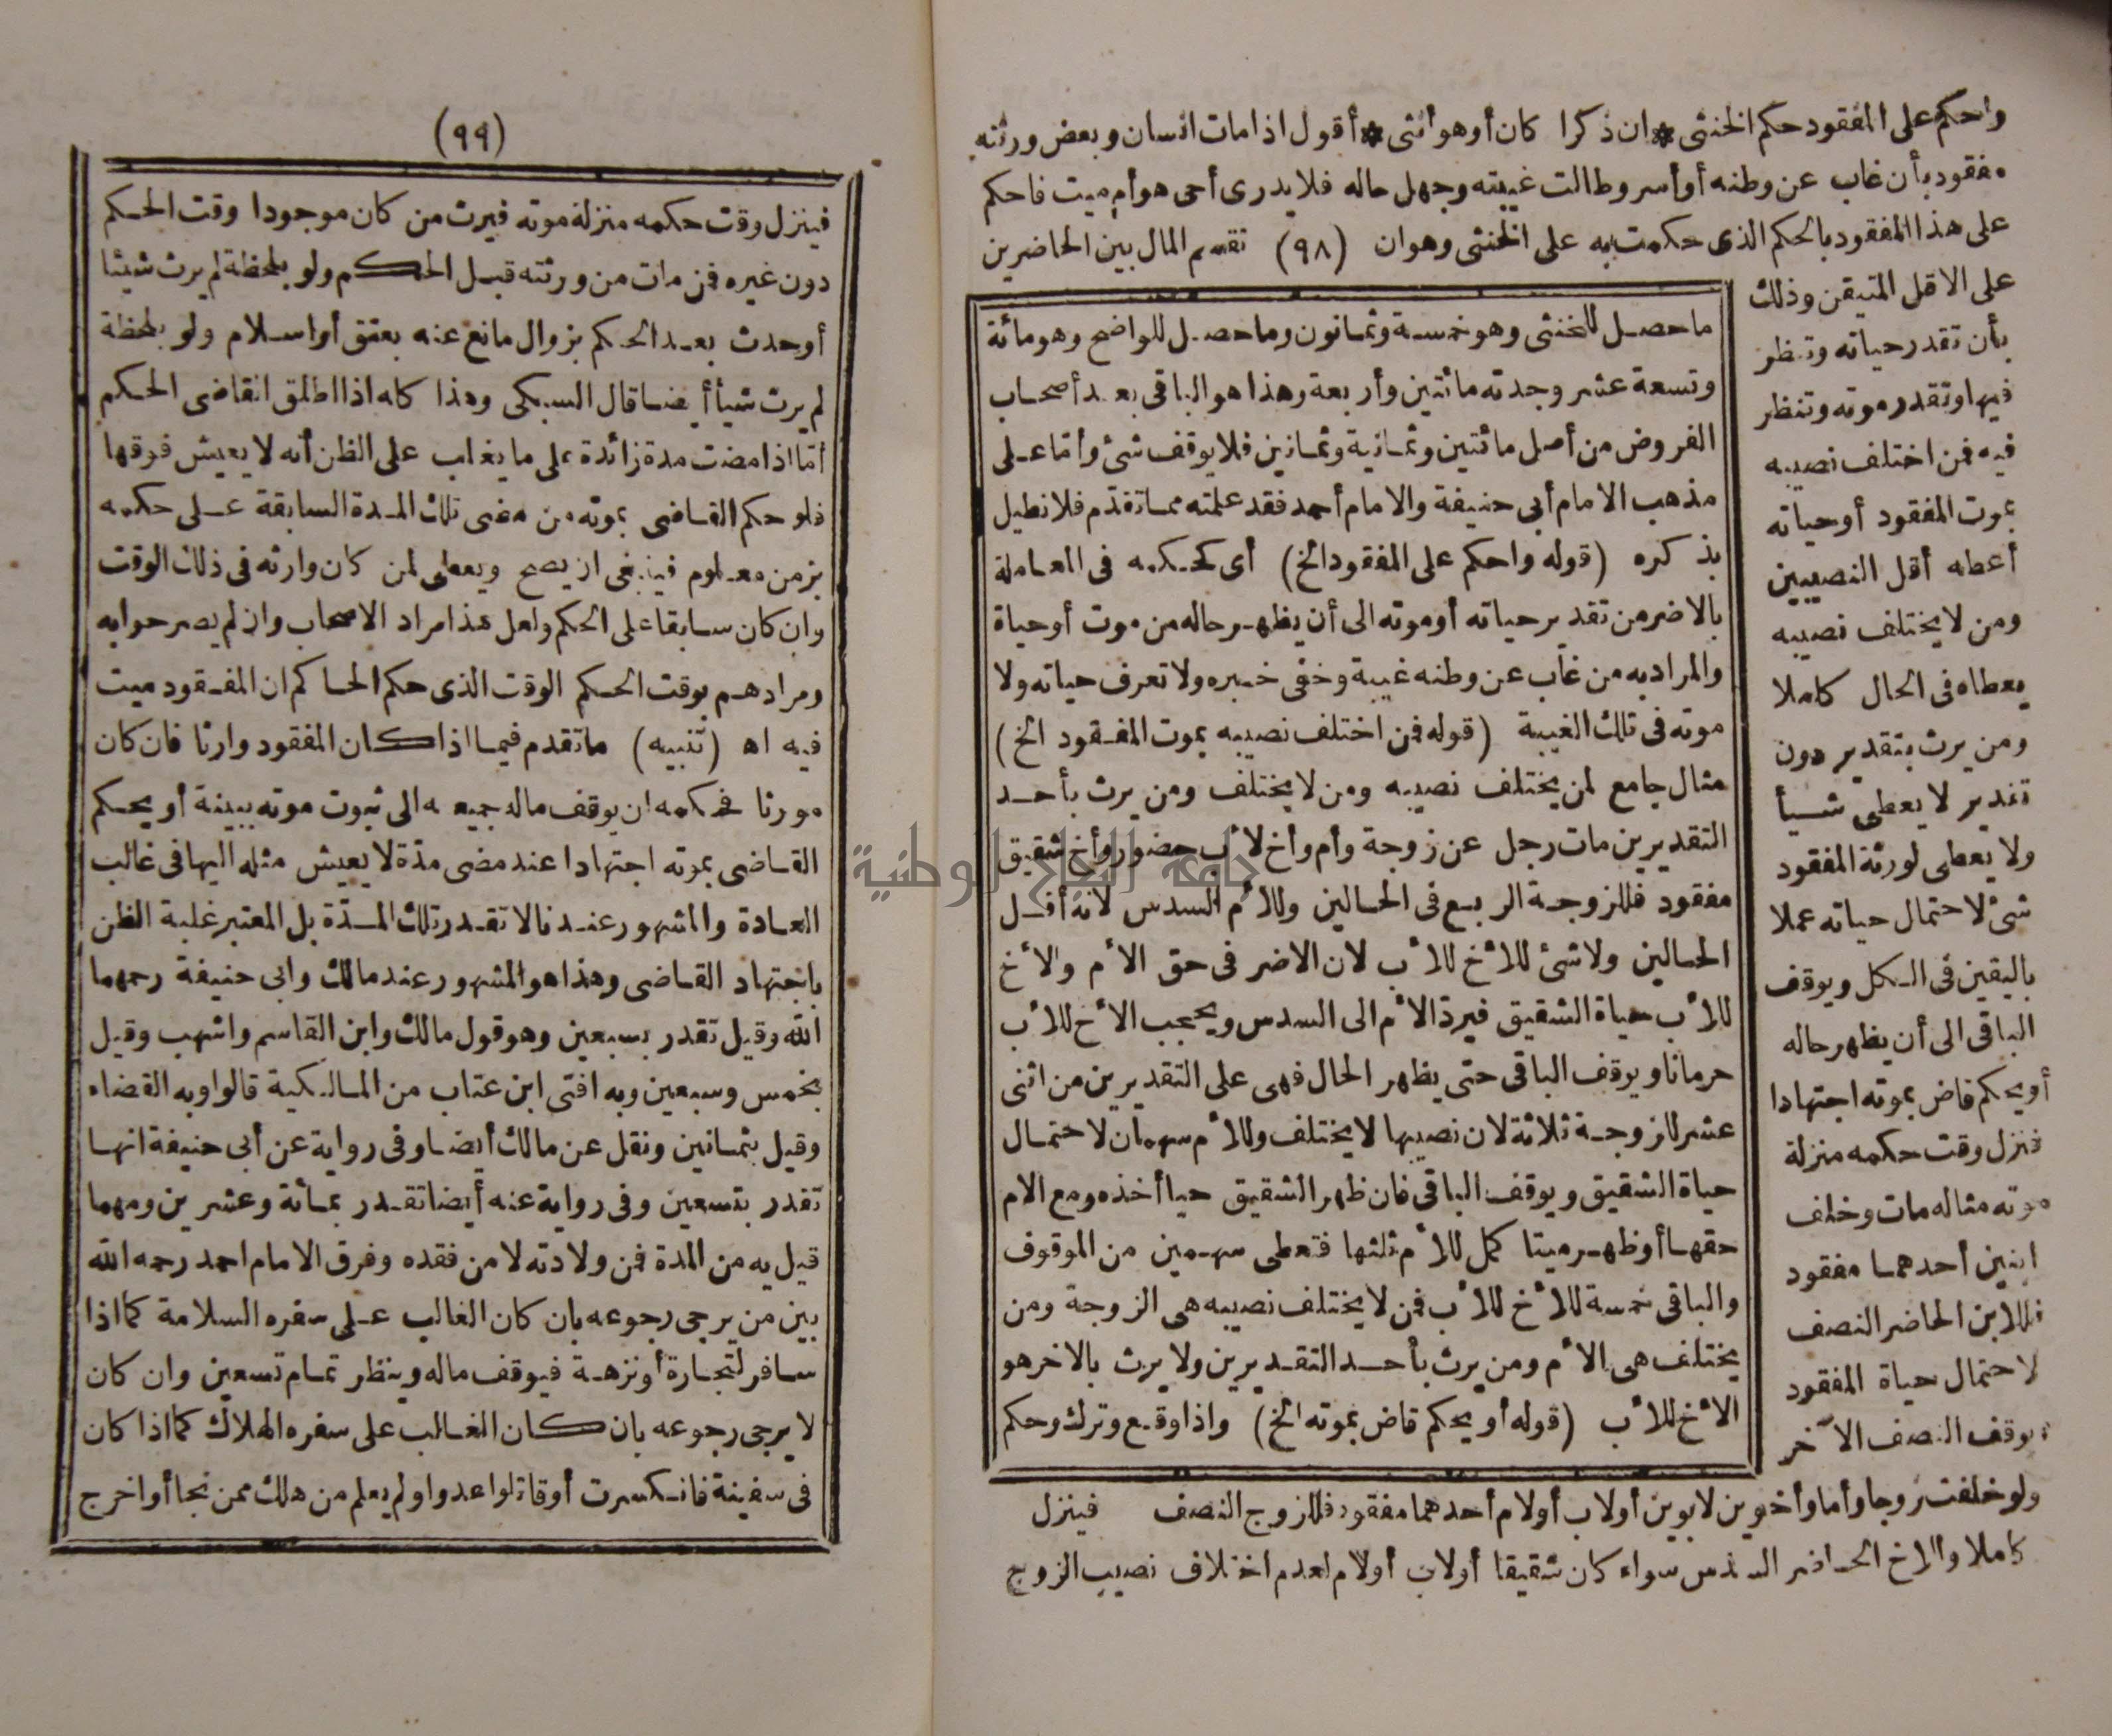 واحكم على المفقود حكم الخنثى * ان ذكرا كان أو هو أنثى * أقول اذا مات انسان وبعض ورثته
مفقود بأن غاب عن وطنه أو أسر وطالت غيبته وجهل حاله فلا يدرى أحى هو أم ميت فاحكم
على هذا المفقود بالحكم الذى حكمت به على الخنثى وهو ان (٩٨) تقسم المال بين الحاضرين
على الاقل المتيقن وذلك
بأن تقدر حياته وتنظر
فيها وتقدر موته وتنظر
فيه فمن اختلف نصيبه
بموت المفقود أو حياته
أعطه أقل النصيبين
ومن لا يختلف نصيبه
يعطاه فى الحال كاملا
ومن يرث بتقدير دون
تقدير لا يعطى شيأ
ولا يعطى لورثة المفقود
شئ لاحتمال حياته عملا
باليقين فى الكل ويوقف
الباقى الى أن يظهر حاله
أو يحكم قاض بموته اجتهادا
فنزل وقت حكمه منزلة
موته مثاله مات وخلف
ابنين أحدهما مفقود
فللابن الحاضر النصف
لاحتمال حياة المفقود
ويوقف النصف الآخر
ولو خلفت زوجا وأما وأخوين لابوين أو لاب أو لام أحدهما مفقود فللزوج النصف فينزل
كاملا وللاخ الحاضر السدس سواء كان شقيقا أو لاب أو لام لعدم اختلاف نصيب الزوج
ما حصل للخنثى وهو خمسة وثمانون وما حصل للواضح وهو مائة
وتسعة عشر وجدته مائتين وأربعة وهذا هو الباقى بعد أصحاب
الفروض من أصل مائتين وثمانية وثمانين فلا يوقف شئ وأما على
مذهب الامام أبى حنيفة والامام أحمد فقد علمته مما تقدّم فلا نطيل
بذكره (قوله واحكم على المفقود الخ) أى كحكمه فى المعاملة
بالاضر من تقدير حياته أو موته الى أن يظهر حاله من موت أو حياة
والمراد به من غاب عن وطنه غيبة وخفى خبره ولا تعرف حياته ولا
موته فى تلك الغيبة (قوله فمن اختلف نصيبه بموت المفقود الخ)
مثال جامع لمن يختلف نصيبه ومن لا يختلف ومن يرث بأحد
التقديرين مات رجل عن زوجة وأم وأخ لأب حضور وأخ شقيق
مفقود فللزوجة الربع فى الحالين وللأم السدس لانه أقل
الحالين ولا شئ للأخ للأب لان الاضر فى حق الأم والأخ
للأب حياة الشقيق فيردّ الأم الى السدس ويحجب الأخ للأب
حرمانا ويوقف الباقى حتى يظهر الحال فهى على التقديرين من اثنى
عشر للزوجة ثلاثة لان نصيبها لا يختلف وللأم سهمان لاحتمال
حياة الشقيق ويوقف الباقى فان ظهر الشقيق حيا أخذه ومع الام
حقها أو ظهر ميتا كمل للأم ثلثها فتعطى سهمين من الموقوف
والباقى خمسة للأخ للأب فمن لا يختلف نصيبه هى الزوجة ومن
يختلف هى الأم ومن يرث بأحد التقديرين ولا يرث بالاخر هو
الأخ للأب (قوله أو يحكم قاض بموته الخ) واذا وقع وترك وحكم
(٩٩)
فينزل وقت حكمه منزلة موته فيرث من كان موجودا وقت الحكم
دون غيره فمن مات من ورثته قبل الحكم ولو بلحظة لم يرث شيئا
أو حدث بعد الحكم بزوال مانع عنه بعتق أو اسلام ولو بلحظة
لم يرث شيأ أيضا قال السبكى وهذا كله اذا اطلق القاضى الحكم
أمّا اذا مضت مدة زائدة على ما يغلب على الظن أنه لا يعيش فوقها
فلو حكم القاضى بموته من مضى تلك المدة السابقة على حكمه
بزمن معلوم فينبغى ان يصح ويعطى لمن كان وارثه فى ذلك الوقت
وان كان سابقا على الحكم ولعل هذا مراد الاصحاب وان لم يصرحوا به
ومرادهم بوقت الحكم الوقت الذى حكم الحاكم ان المفقود ميت
فيه اه (تنبيه) ما تقدم فيما اذا كان المفقود وارثا فان كان
مورثا فحكمه ان يوقف ماله جميعه الى ثبوت موته ببينة أو يحكم
القاضى بموته اجتهادا عند مضى مدّة لا يعيش مثله اليها فى غالب
العادة والمشهور عندنا لا تقدر تلك المدّة بل المعتبر غلبة الظن
باجتهاد القاضى وهذا هو المشهور عند مالك وابى حنيفة رحمهما
الله وقيل تقدر بسبعين وهو قول مالك وابن القاسم واشهب وقيل
بخمس وسبعين وبه افتى ابن عتاب من المالكية قالوا وبه القضاء
وقيل بثمانين ونقل عن مالك أيضا وفى رواية عن أبى حنيفة انها
تقدر بتسعين وفى رواية عنه أيضا تقدر بمائة وعشرين ومهما
قيل به من المدة فمن ولادته لا من فقده وفرق الامام احمد رحمه الله
بين من يرجى رجوعه بان كان الغالب على سفره السلامة كما اذا
سافر لتجارة أو نزهة فيوقف ماله وينظر تمام تسعين وان كان
لا يرجى رجوعه بان كان الغالب على سفره الهلاك كما اذا كان
فى سفينة فانكسرت أو قاتلوا عدوا ولم يعلم من هلك ممن نجا أو اخرج
جامعة النجاح الوطنية